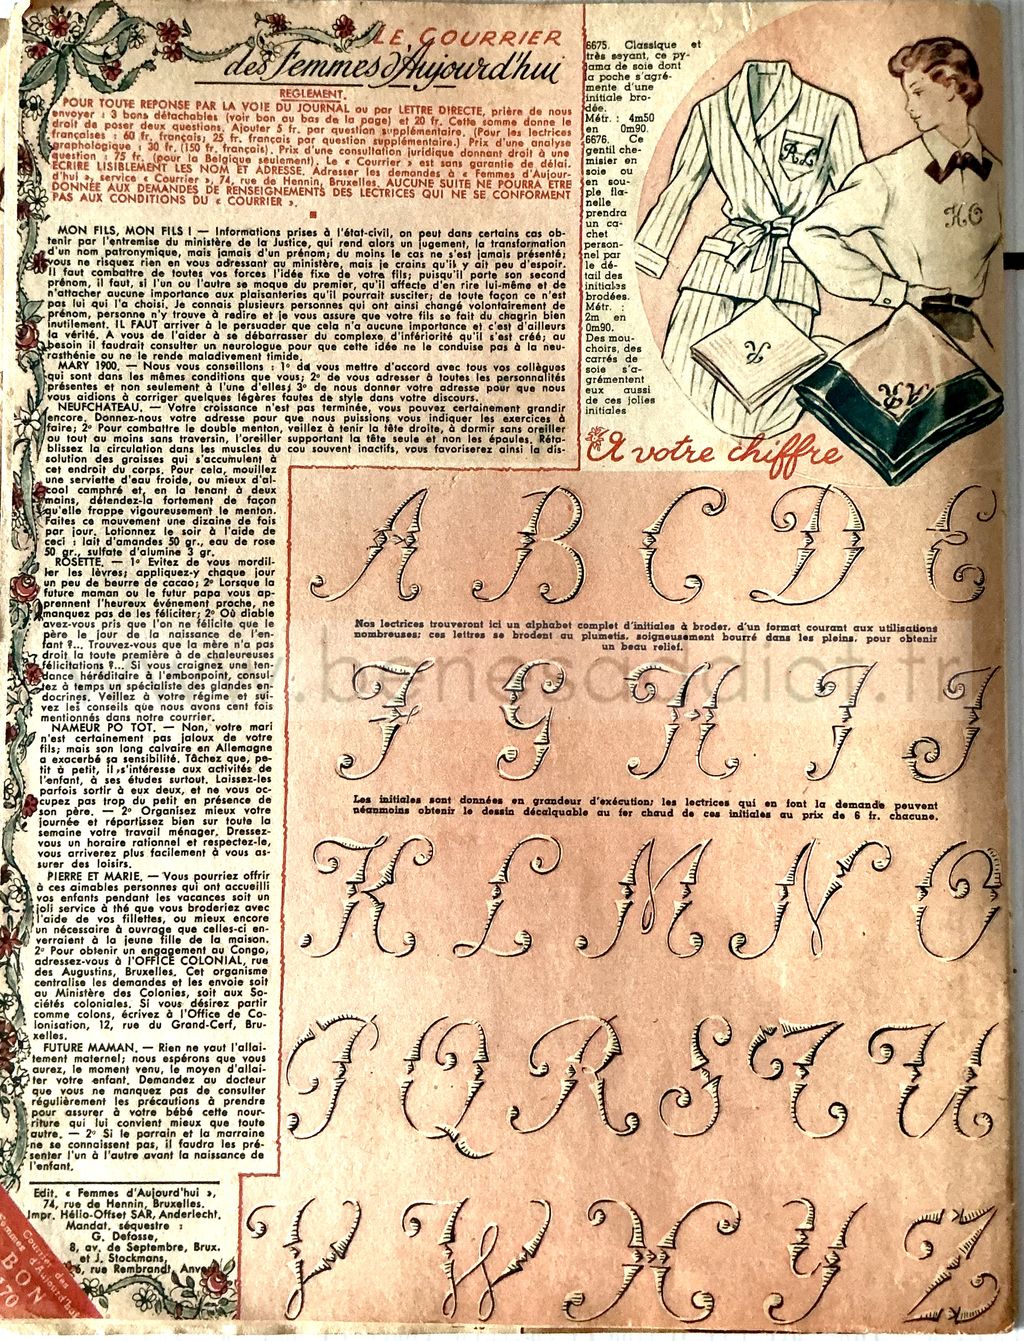 LE COURRIER
des Femmes d'Aujourd'hui
REGLEMENT.
POUR TOUTE REPONSE PAR LA VOIE DU JOURNAL ou par LETTRE DIRECTE, prière de nous
envoyer : 3 bons détachables (voir bon au bas de la page) et 20 fr. Cette somme donne le
droit de poser deux questions. Ajouter 5 fr. par question supplémentaire. (Pour les lectrices
françaises : 60 fr. français; 25 fr. français par question supplémentaire.) Prix d'une analyse
graphologique : 30 fr. (150 fr. français). Prix d'une consultation juridique donnant droit à une
question : 75 fr. (pour la Belgique seulement). Le « Courrier » est sans garantie de délai.
ECRIRE LISIBLEMENT LES NOM ET ADRESSE. Adresser les demandes à « Femmes d'Aujour-
d'hui », service « Courrier », 74, rue de Hennin, Bruxelles. AUCUNE SUITE NE POURRA ETRE
DONNÉE AUX DEMANDES DE RENSEIGNEMENTS DES LECTRICES QUI NE SE CONFORMENT
PAS AUX CONDITIONS DU « COURRIER ».
MON FILS, MON FILS ! — Informations prises à l'état-civil, on peut dans certains cas ob-
tenir par l'entremise du ministère de la Justice, qui rend alors un jugement, la transformation
d'un nom patronymique, mais jamais d'un prénom; du moins le cas ne s'est jamais présenté;
vous ne risquez rien en vous adressant au ministère, mais je crains qu'il y ait peu d'espoir.
Il faut combattre de toutes vos forces l'idée fixe de votre fils; puisqu'il porte son second
prénom, il faut, si l'un ou l'autre se moque du premier, qu'il affecte d'en rire lui-même et de
n'attacher aucune importance aux plaisanteries qu'il pourrait susciter; de toute façon ce n'est
pas lui qui l'a choisi. Je connais plusieurs personnes qui ont ainsi changé volontairement de
prénom, personne n'y trouve à redire et je vous assure que votre fils se fait du chagrin bien
inutilement. IL FAUT arriver à le persuader que cela n'a aucune importance et c'est d'ailleurs
la vérité. A vous de l'aider à se débarrasser du complexe d'infériorité qu'il s'est créé; au
besoin il faudrait consulter un neurologue pour que cette idée ne le conduise pas à la neu-
rasthénie ou ne le rende maladivement timide.
MARY 1900. — Nous vous conseillons : 1° de vous mettre d'accord avec tous vos collègues
qui sont dans les mêmes conditions que vous; 2° de vous adresser à toutes les personnalités
présentes et non seulement à l'une d'elles; 3° de nous donner votre adresse pour que nous
vous aidions à corriger quelques légères fautes de style dans votre discours.
NEUFCHATEAU. — Votre croissance n'est pas terminée, vous pouvez certainement grandir
encore. Donnez-nous votre adresse pour que nous puissions vous indiquer les exercices à
faire; 2° Pour combattre le double menton, veillez à tenir la tête droite, à dormir sans oreiller
ou tout au moins sans traversin, l'oreiller supportant la tête seule et non les épaules. Réta-
blissez la circulation dans les muscles du cou souvent inactifs, vous favoriserez ainsi la dis-
solution des graisses qui s'accumulent à
cet endroit du corps. Pour cela, mouillez
une serviette d'eau froide, ou mieux d'al-
cool camphré et, en la tenant à deux
mains, détendez-la fortement de façon
qu'elle frappe vigoureusement le menton.
Faites ce mouvement une dizaine de fois
par jour. Lotionnez le soir à l'aide de
ceci : lait d'amandes 50 gr., eau de rose
50 gr., sulfate d'alumine 3 gr.
ROSETTE. — 1° Evitez de vous mordil-
ler les lèvres; appliquez-y chaque jour
un peu de beurre de cacao; 2° Lorsque la
future maman ou le futur papa vous ap-
prennent l'heureux événement proche, ne
manquez pas de les féliciter; 2° Où diable
avez-vous pris que l'on ne félicite que le
père le jour de la naissance de l'en-
fant ?... Trouvez-vous que la mère n'a pas
droit la toute première à de chaleureuses
félicitations ?... Si vous craignez une ten-
dance héréditaire à l'embonpoint, consul-
tez à temps un spécialiste des glandes en-
docrines. Veillez à votre régime et sui-
vez les conseils que nous avons cent fois
mentionnés dans notre courrier.
NAMEUR PO TOT. — Non, votre mari
n'est certainement pas jaloux de votre
fils; mais son long calvaire en Allemagne
a exacerbé sa sensibilité. Tâchez que, pe-
tit à petit, il s'intéresse aux activités de
l'enfant, à ses études surtout. Laissez-les
parfois sortir à eux deux, et ne vous oc-
cupez pas trop du petit en présence de
son père. — 2° Organisez mieux votre
journée et répartissez bien sur toute la
semaine votre travail ménager. Dressez-
vous un horaire rationnel et respectez-le,
vous arriverez plus facilement à vous as-
surer des loisirs.
PIERRE ET MARIE. — Vous pourriez offrir
à ces aimables personnes qui ont accueilli
vos enfants pendant les vacances soit un
joli service à thé que vous broderiez avec
l'aide de vos fillettes, ou mieux encore
un nécessaire à ouvrage que celles-ci en-
verraient à la jeune fille de la maison.
2° Pour obtenir un engagement au Congo,
adressez-vous à l'OFFICE COLONIAL, rue
des Augustins, Bruxelles. Cet organisme
centralise les demandes et les envoie soit
au Ministère des Colonies, soit aux So-
ciétés coloniales. Si vous désirez partir
comme colons, écrivez à l'Office de Co-
lonisation, 12, rue du Grand-Cerf, Bru-
xelles.
FUTURE MAMAN. — Rien ne vaut l'allai-
tement maternel; nous espérons que vous
aurez, le moment venu, le moyen d'allai-
ter votre enfant. Demandez au docteur
que vous ne manquez pas de consulter
régulièrement les précautions à prendre
pour assurer à votre bébé cette nour-
riture qui lui convient mieux que toute
autre. — 2° Si le parrain et la marraine
ne se connaissent pas, il faudra les pré-
senter l'un à l'autre avant la naissance de
l'enfant.
Edit. « Femmes d'Aujourd'hui »,
74, rue de Hennin, Bruxelles.
Impr. Hélio-Offset SAR, Anderlecht.
Mandat. séquestre :
G. Defosse,
8, av. de Septembre, Brux.
et J. Stockmans,
6, rue Rembrandt, Anvers
Courrier des
Femmes d'Aujourd'hui
BON
170
6675. Classique et
très seyant, ce py-
jama de soie dont
la poche s'agré-
mente d'une
initiale bro-
dée.
Métr. : 4m50
en 0m90.
6676. Ce
gentil che-
misier en
soie ou
en sou-
ple fla-
nelle
prendra
un ca-
chet
person-
nel par
le dé-
tail des
initiales
brodées.
Métr. :
2m en
0m90.
Des mou-
choirs, des
carrés de
soie s'a-
grémentent
eux aussi
de ces jolies
initiales
R.L
H.O
A votre chiffre
A B C D E
Nos lectrices trouveront ici un alphabet complet d'initiales à broder, d'un format courant aux utilisations
nombreuses; ces lettres se brodent au plumetis, soigneusement bourré dans les pleins, pour obtenir
un beau relief.
www.barnesaddict.fr
F G H I J
Les initiales sont données en grandeur d'exécution; les lectrices qui en font la demande peuvent
néanmoins obtenir le dessin décalquable au fer chaud de ces initiales au prix de 6 fr. chacune.
K L M N O
P Q R S T U
V W X Y Z